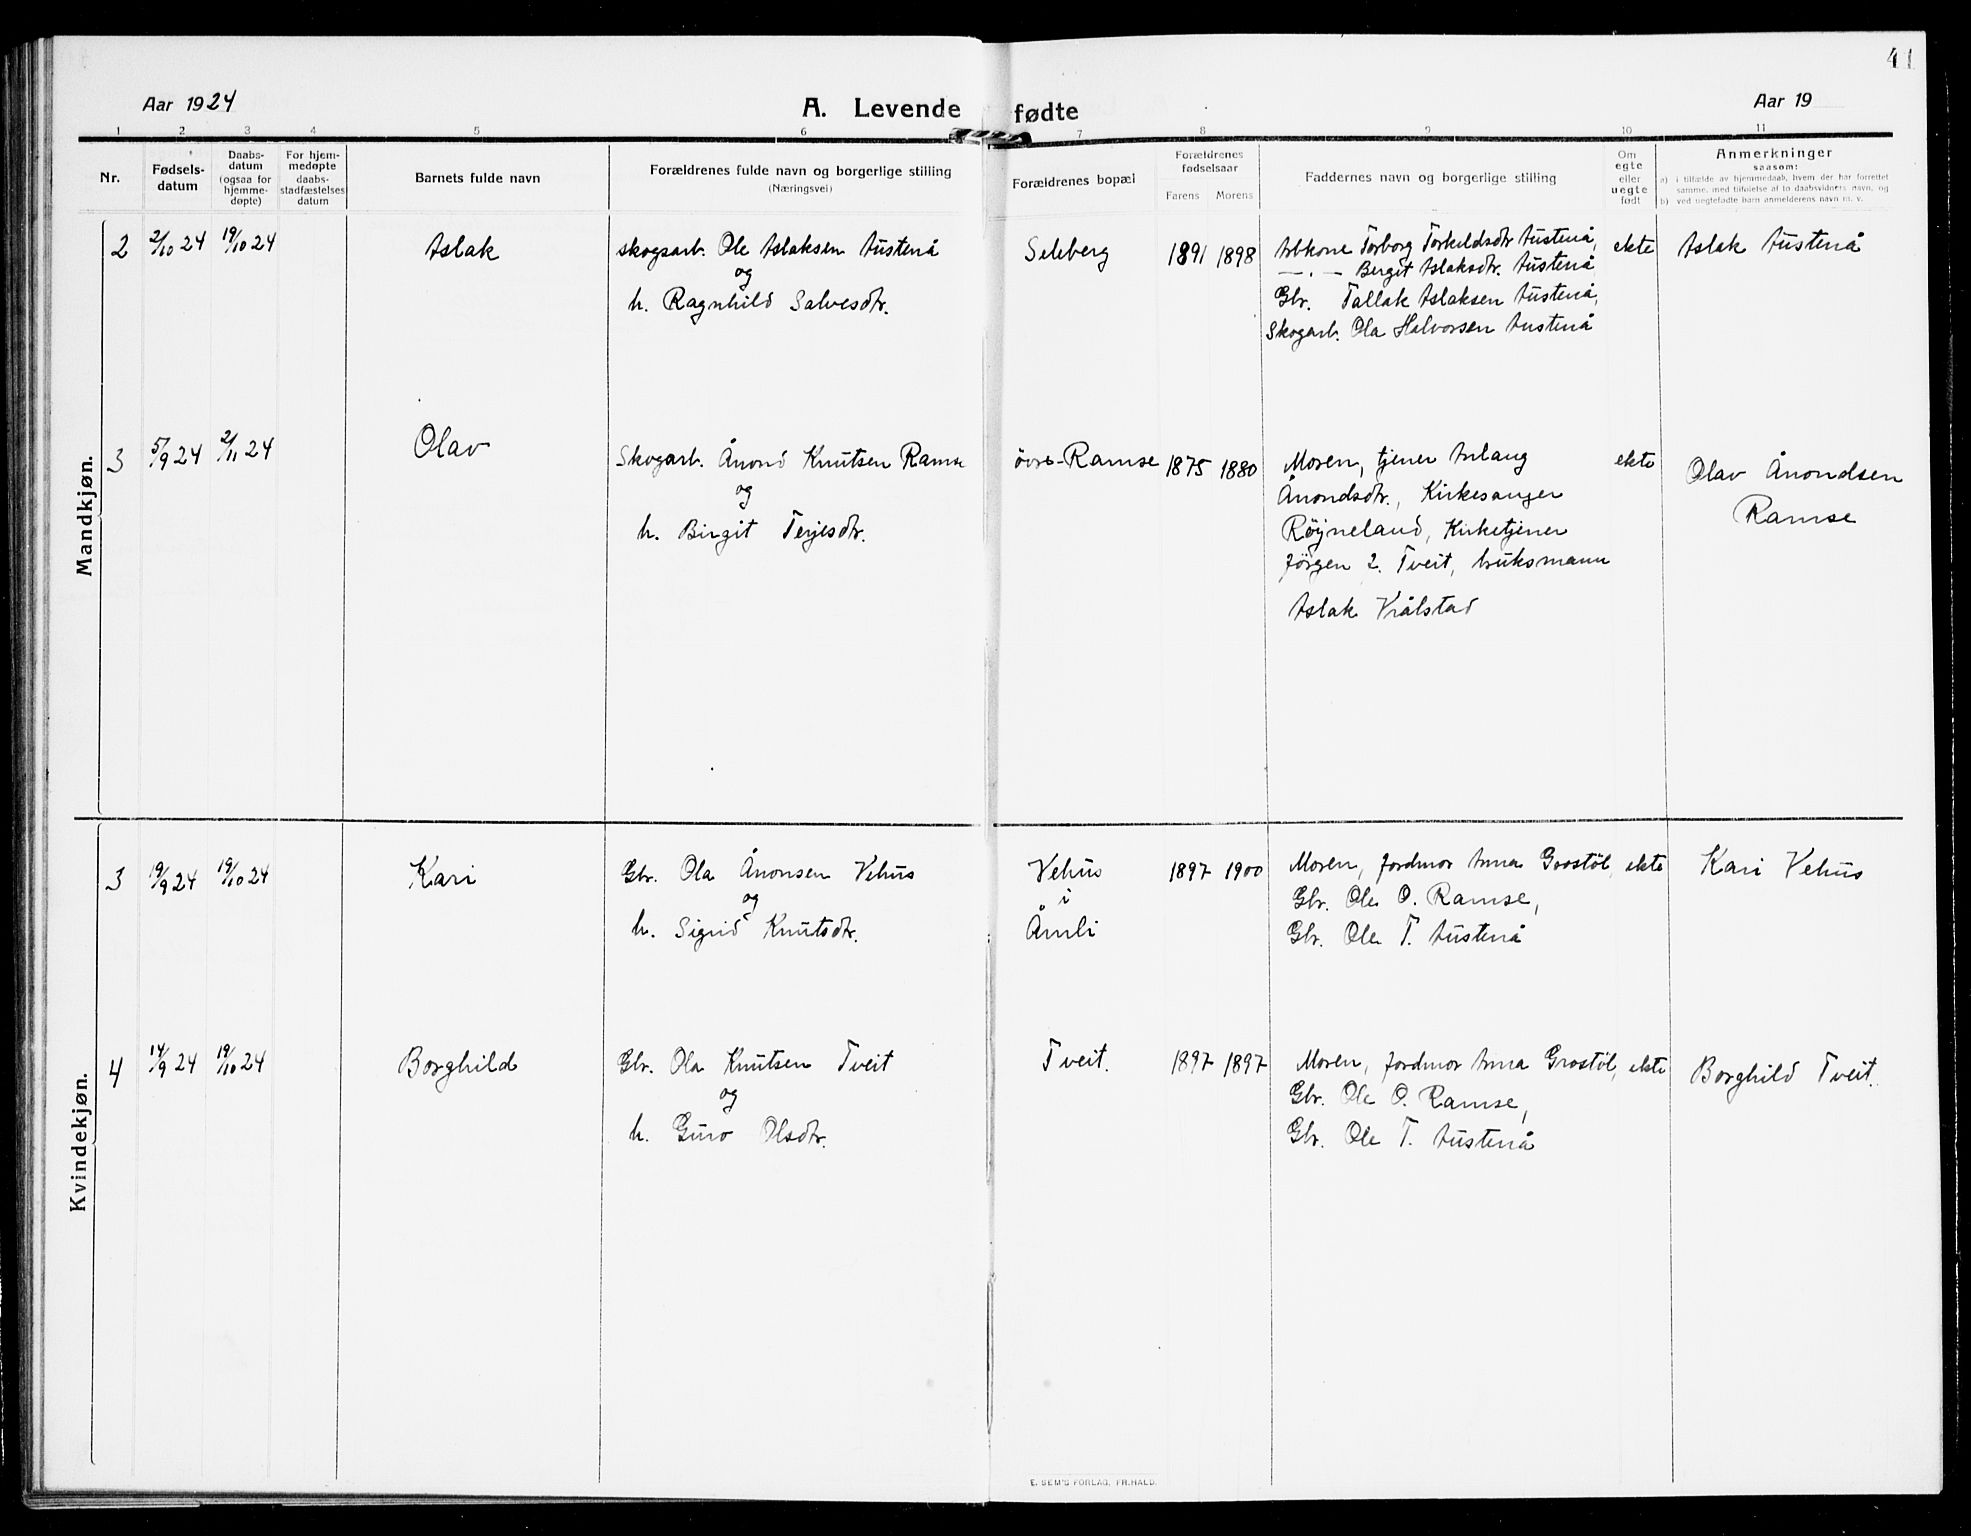 41
Aar 1924
A. Levende fødte
Aar 19
1 2 3 4 5 6 7 8 9 10 11
Nr.
Fødsels-
datum
Daabs-
datum
(ogsaa for
hjemme-
døpte)
For hjem-
medøpte
daabs-
stadfæstelses
datum
Barnets fulde navn
Forældrenes fulde navn og borgerlige stilling
(Næringsvei)
Forældrenes bopæl
Forældrenes
fødselsaar
Farens Morens
Faddernes navn og borgerlige stilling
Om
egte
eller
uegte
født
Anmerkninger
saasom:
a) i tilfælde av hjemmedaab, hvem der har forrettet
samme, med tilføielse af to daabsvidners navn, og
b) ved uegtefødte barn anmelderens navn m. v.
Mandkjøn.
2 2/10 24 19/10 24 Aslak
skogsarb. Ole Aslaksen Austenå
og
h. Ragnhild Salvesdtr.
Seleberg 1891 1898
Arbkone Torborg Torkildsdtr Austenå,
— . — Bergit Aslaksdtr. Austenå
Gbr. Tallak Aslaksen Austenå,
Skogarb. Ola Halvorsen Austenå
ekte
Aslak Austenå
3 5/9 24 2/11 24 Olav
Skogarb. Ånond Knutsen Ramse
og
h. Birgit Terjesdtr.
øvre-Ramse 1875 1880
Moren, tjener Anlaug
Ånondsdtr., Kirkesanger
Røyneland, Kirketjener
Jörgen 2. Tveit, bruksmann
Aslak Vrålstad
ekte
Olav Ånondsen
Ramse
Kvindekjøn.
3 19/9 24 19/10 24 Kari
Gbr. Ola Ånonsen Vehus
og
h. Sigrid Knutsdtr.
Vehus
i
Åmli
1897 1900
Moren, jordmor Anna Grostöl,
Gbr. Ole O. Ramse,
Gbr. Ole T. Austenå
ekte
Kari Vehus
4 14/9 24 19/10 24 Borghild
Gbr. Ola Knutsen Tveit
og
h. Guro Olsdtr.
Tveit. 1897 1897
Moren, jordmor Anna Grostöl,
Gbr. Ole O. Ramse,
Gbr. Ole T. Austenå
ekte
Borghild Tveit.
E. SEM'S FORLAG, FR.HALD.